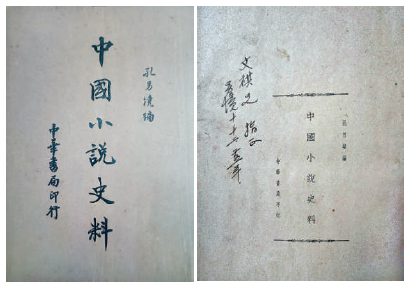 中國小說史料
孔另境編
中華書局印行
文祺兄 指正
中國小說史料
孔另境編
中華書局印行